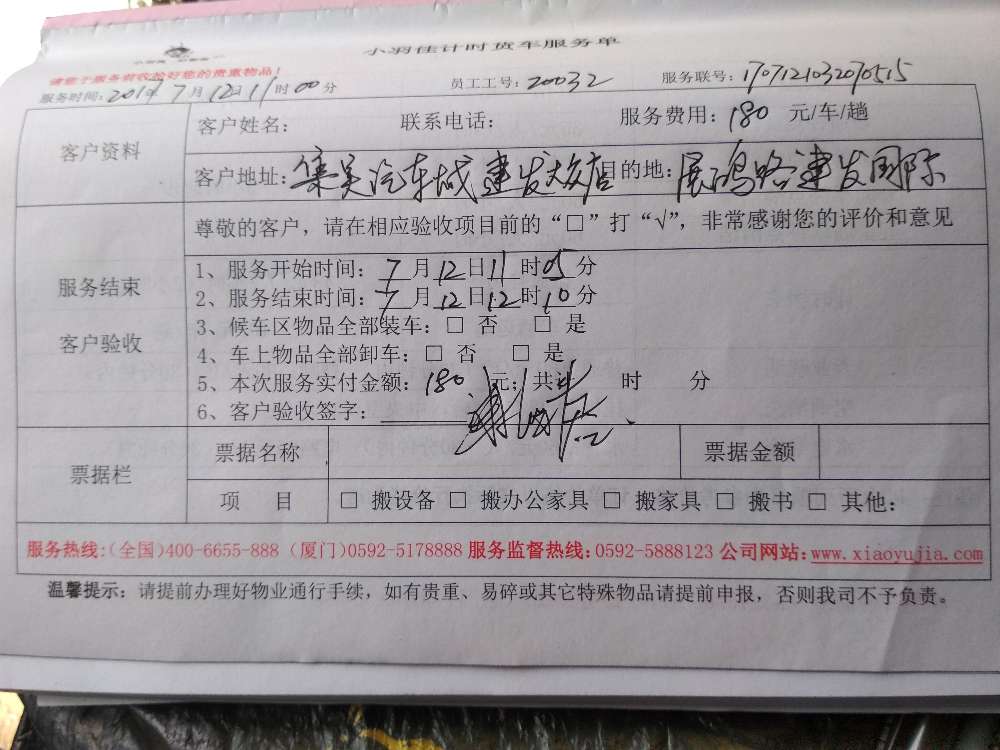 小羽佳计时货车服务单
请您于服务前收拾好您的贵重物品！
服务时间：2017年7月12日11时00分 员工工号：20032 服务联号：1707121032070515
客户资料
客户姓名： 联系电话： 服务费用：180 元/车/趟
客户地址：集美汽车城建发大众店 目的地：展鸿路建发国际
尊敬的客户，请在相应验收项目前的“□”打“√”，非常感谢您的评价和意见
服务结束
客户验收
1、服务开始时间：7月12日11时05分
2、服务结束时间：7月12日12时10分
3、候车区物品全部装车：□ 否 □ 是
4、车上物品全部卸车：□ 否 □ 是
5、本次服务实付金额：180 元；共计 时 分
6、客户验收签字：
票据栏
票据名称 票据金额
项 目 □ 搬设备 □ 搬办公家具 □ 搬家具 □ 搬书 □ 其他：
服务热线：(全国)400-6655-888 (厦门)0592-5178888 服务监督热线：0592-5888123 公司网站：www.xiaoyujia.com
温馨提示：请提前办理好物业通行手续，如有贵重、易碎或其它特殊物品请提前申报，否则我司不予负责。